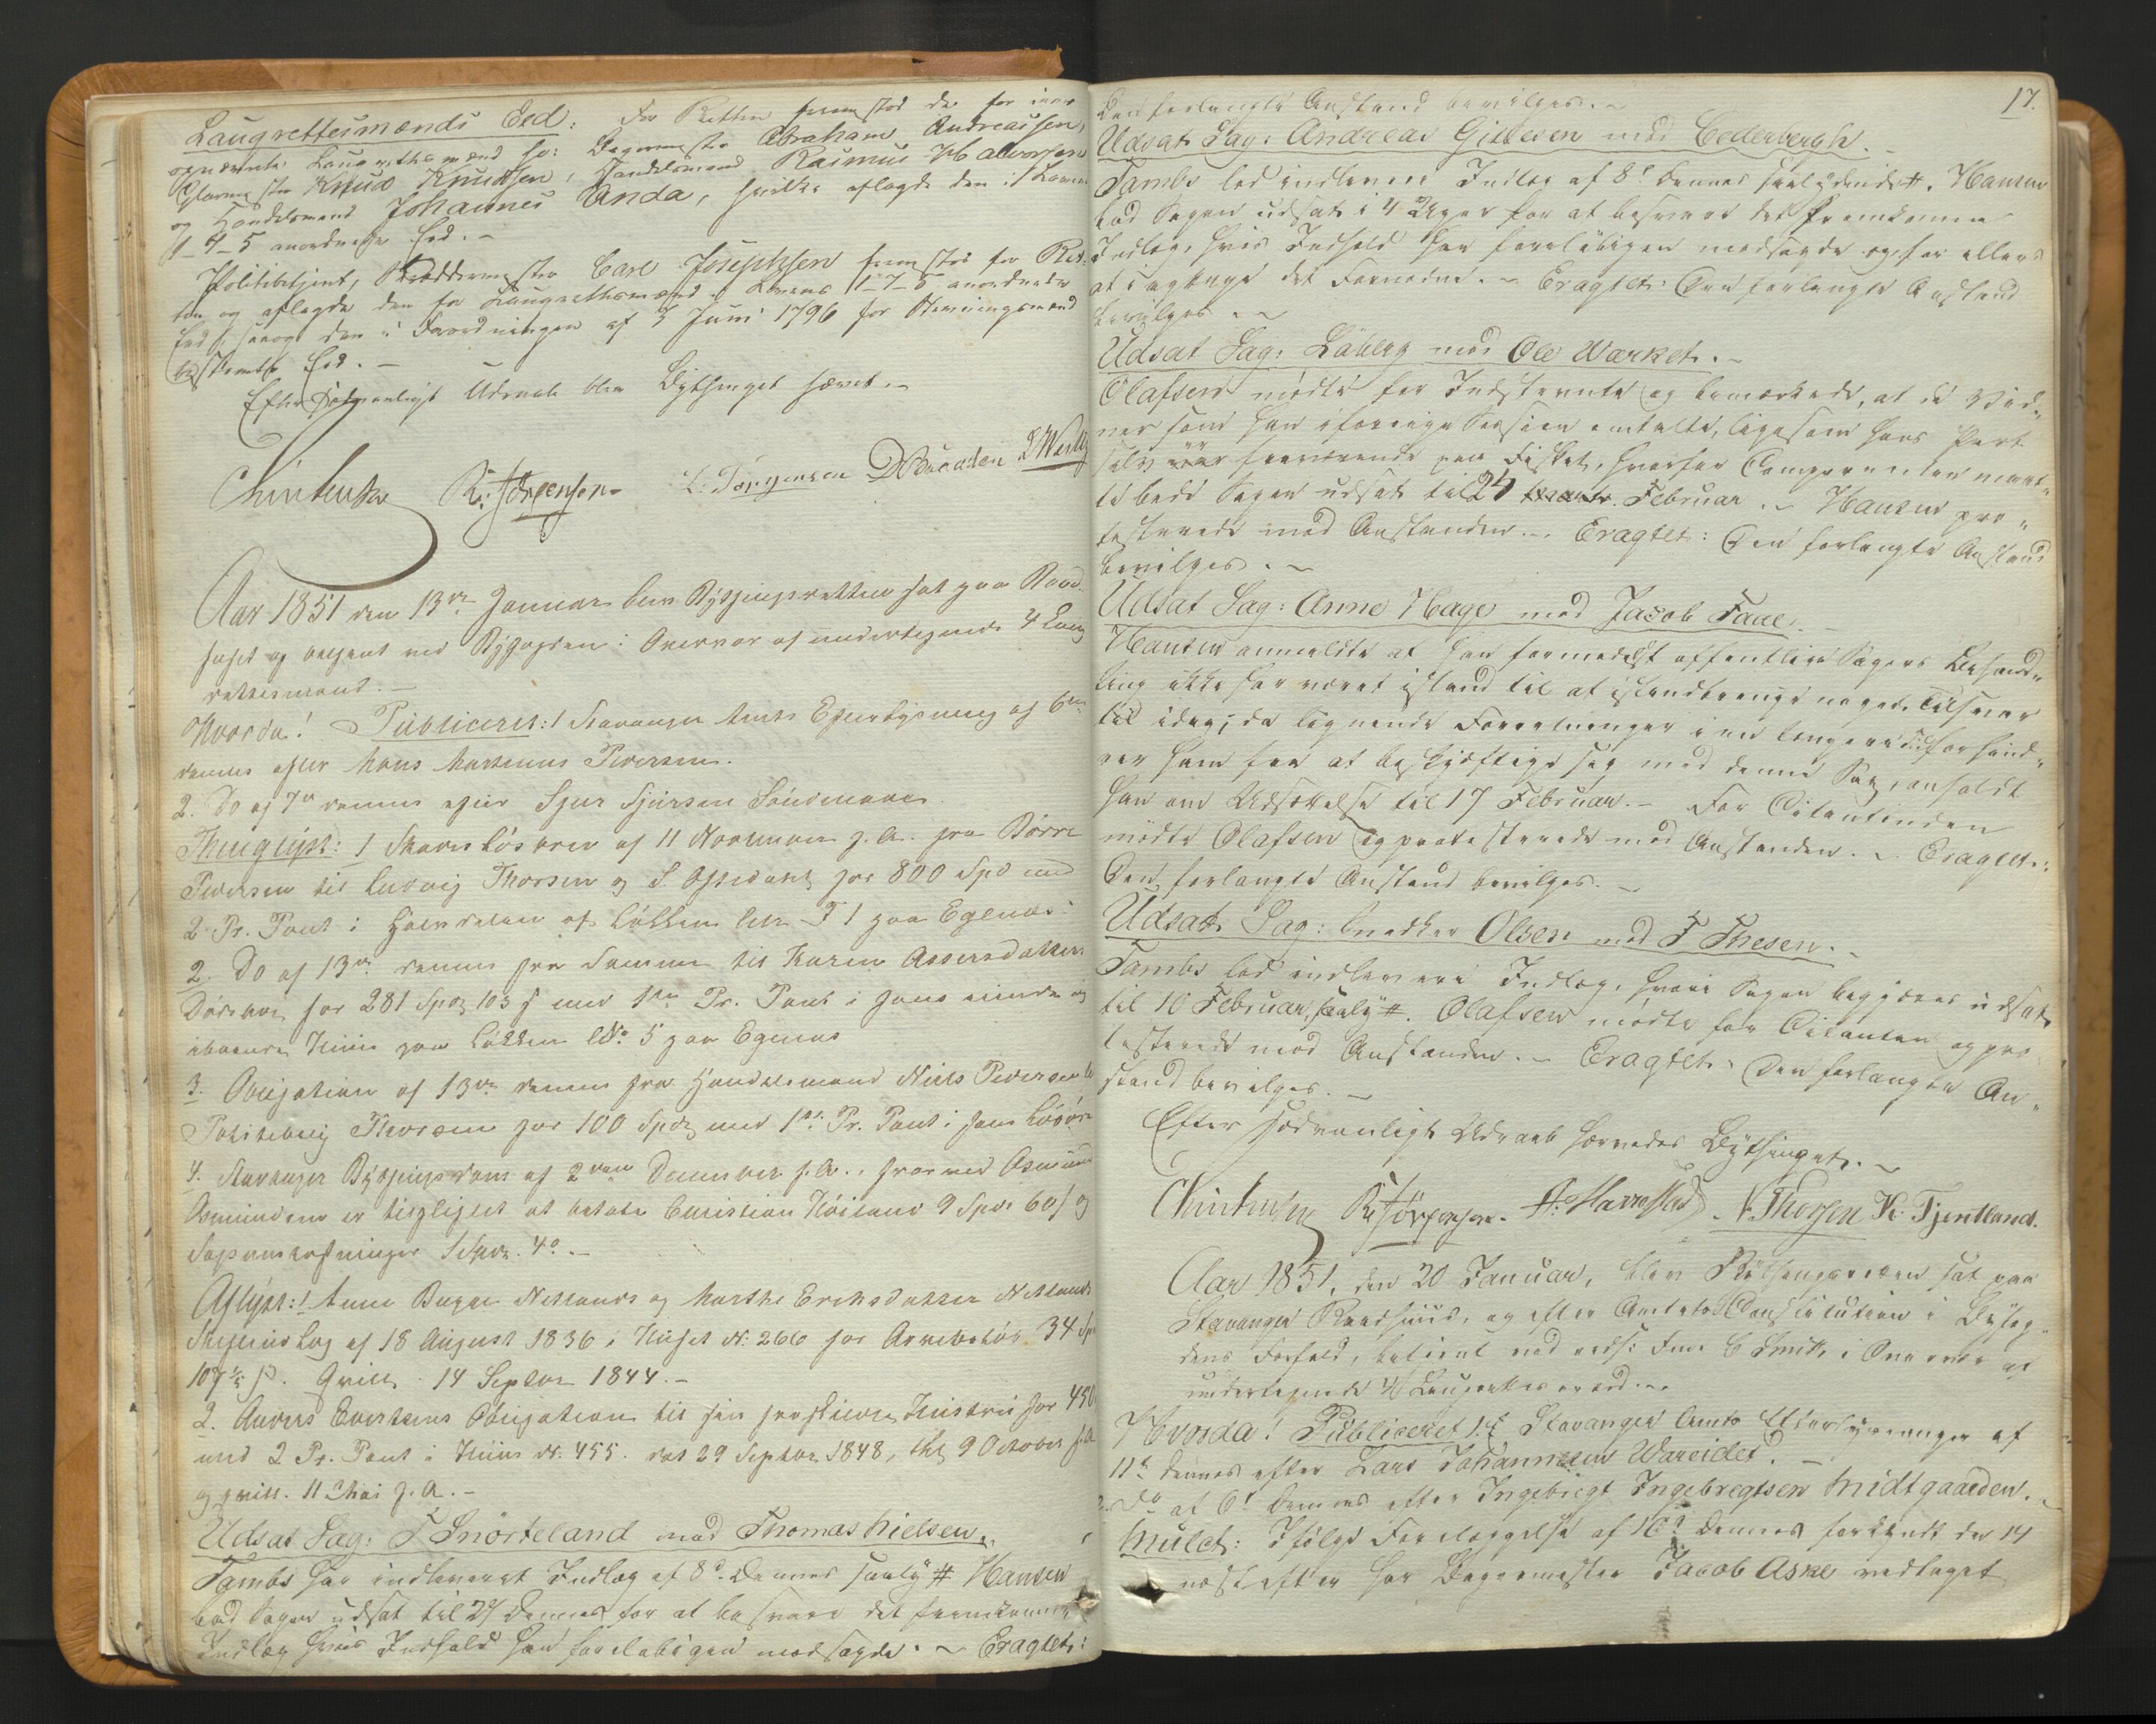 Laugrettesmænds Eed: For Retten fremstod de for iaar
opnævnte Laugrettesmænd so: Bagermester Abraham Andreassen,
Glarmester Knud Knudsen, Handelsmand Rasmus Halvorsen
og Handelsmand Johannes Anda, hvilke aflagde den i Lovens
1-7-5 anordnede Eed.-
Politibetjent, Skræddermester Carl Josephsen fremstod for Ret-
ten og aflagde den for Laugrettesmænd i Lovens 1-7-5 anordnede
Eed, saaog den i Forordningen af 3 Juni 1796 for Stevningsmænd
bestemte Eed.-
Efter sædvanligt Udraab blev Bythinget hævet.-
Christensen R. Jörgensen L. Jörgensen
Aar 1851 den 13de Januar blev Bythingsretten sat paa Raad-
huset og betjent ved Byfogden i Overvær af undertegnede 4 Laug
rettesmænd.-
Hvorda! Publiceret: 1 Stavanger Amts Efterlysning af 6te
dennes efter Hans Martinus Pedersen.
2. Do af 7de dennes efter Sjur Sjursen
Thinglyst: 1 Skadesløsbrev af 11 November f. A. fra Börre
Pedersen til Ludvig Thorsen og S. for 800 Spd med
2 Pr. Pant i Halvdelen af Løkken Litr F 1 paa Egenæs.
2. Do af 13de dennes fra Samme til Karen Assersdatter
for 281 Spd 103 ß med 1ste Pr. Pant i hans eiende og
iboende Huus paa Løkken No. 5 paa Egenæs
3. Obligation af 13de dennes fra Handelsmand Niels Pedersen til
Politibetj Thorsen for 100 Spd med 1ste Pr. Pant i hans Løsöre
4. Stavanger Bythingsdom af 2den December f. A., hvorved Asmund
Asmundsen er tilpligtet at betale Christian Höiland 9 Spd 60 ß og
Sagsomkostninger 1 Spd. 4 ß.-
Aflyst: 1 Anne Bugge Netlands og Marthe Eriksdatter Netlands
Skifteudlæg af 18 August 1836 i Huset No. 266 for Arvebeløb 34 Spd
107 1/5 ß. Qvitt. 14 Septbr 1844.-
2. Anders Evertsens Obligation til sin fraskildte Hustru for 450
med 2 Pr. Pant i Huus No. 455. dat 29 Septbr 1848, thl 9 October s. A
og qvitt. 11 Mai f. A.-
Udsat Sag: T Snörteland mod Thomas Nielsen.
Tambs har indleveret Indlæg af 8d. dennes saaly # Hansen
bad Sagen udsat til 27 dennes for at besvare det fremkomne
Indlæg hvis Indhold han foreløbigen modsagde. - Eragtet:
17.
Den forlangte Anstand bevilges.-
Udsat Sag: Andreas Gilleren mod Cederbergh.-
Tambs lod indlevere Indlæg af 8d dennes saalydende #. Hansen
bad Sagen udsat i 4 Uger for at besvare det fremkomne
Indlæg, hvis Indhold han foreløbigen modsagde og for ellers
at iagttage det Fornødne.- Eragtet: Den forlangte Anstand
bevilges.-
Udsat Sag: Löberg mod Ole Warket.-
Olafsen mödte for Indstevnte og bemærkede, at de Vid-
ner som han i forrige Session omtalte, ligesom hans Part
selv er fraværende paa Fisket, hvorfor Comparenten maat-
te bede Sagen udsat til 24 Februar.- Hansen pro-
testerede mod Anstanden.- Eragtet: Den forlangte Anstand
bevilges.-
Udsat Sag: Anne Hage mod Jacob Faae.-
Hansen anmeldte at han formedelst offentlige Sagers Behand-
ling ikke har været istand til at istandbringe noget Tilsvar
til idag; da lignende Forretninger i en længere Tid forhind-
rer ham fra at beskjæftige sig med denne Sag, anholdt
han om Udsættelse til 17 Februar.- For Citantinden
mödte Olafsen og protesterede mod Anstanden.- Eragtet:
Den forlangte Anstand bevilges.-
Udsat Sag: Snedker Olsen mod F Thesen.-
Tambs lod indlevere Indlæg, hvori Sagen begjæres udsat
til 10 Februar, saaly #. Olafsen mödte for Citanten og pro-
testerede mod Anstanden.- Eragtet: Den forlangte An-
stand bevilges.-
Efter sædvanligt Udraab hævedes Bythinget.-
Christensen R. Jörgensen. A. Harrestad N. Thorsen K. Tjentland.
Aar 1851, den 20 Januar, blev Bythingsretten sat paa
Stavanger Raadhuus, og efter Amtets Constitution i Byfog-
dens Forfald, betjent ved C Smith i Overvær af
undertegnede 4 Laugrettesmænd.-
Hvorda! Publiceret 1. Stavanger Amts Efterlysninger af
11te dennes efter Lars Johannesen Wareidet.-
2. Do af 6d dennes efter Ingebrigt Ingebregtsen Midtgaarden.-
Mulct: Ifölge Forelæggelse af 10d dennes forkyndt den 14
næstefter har Bagermester Jacob Aske vedtaget